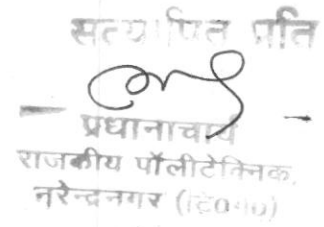 सत्यापित प्रति
प्रधानाचार्य
राजकीय पौलीटेक्निक,
नरेन्द्रनगर (टि०ग०)